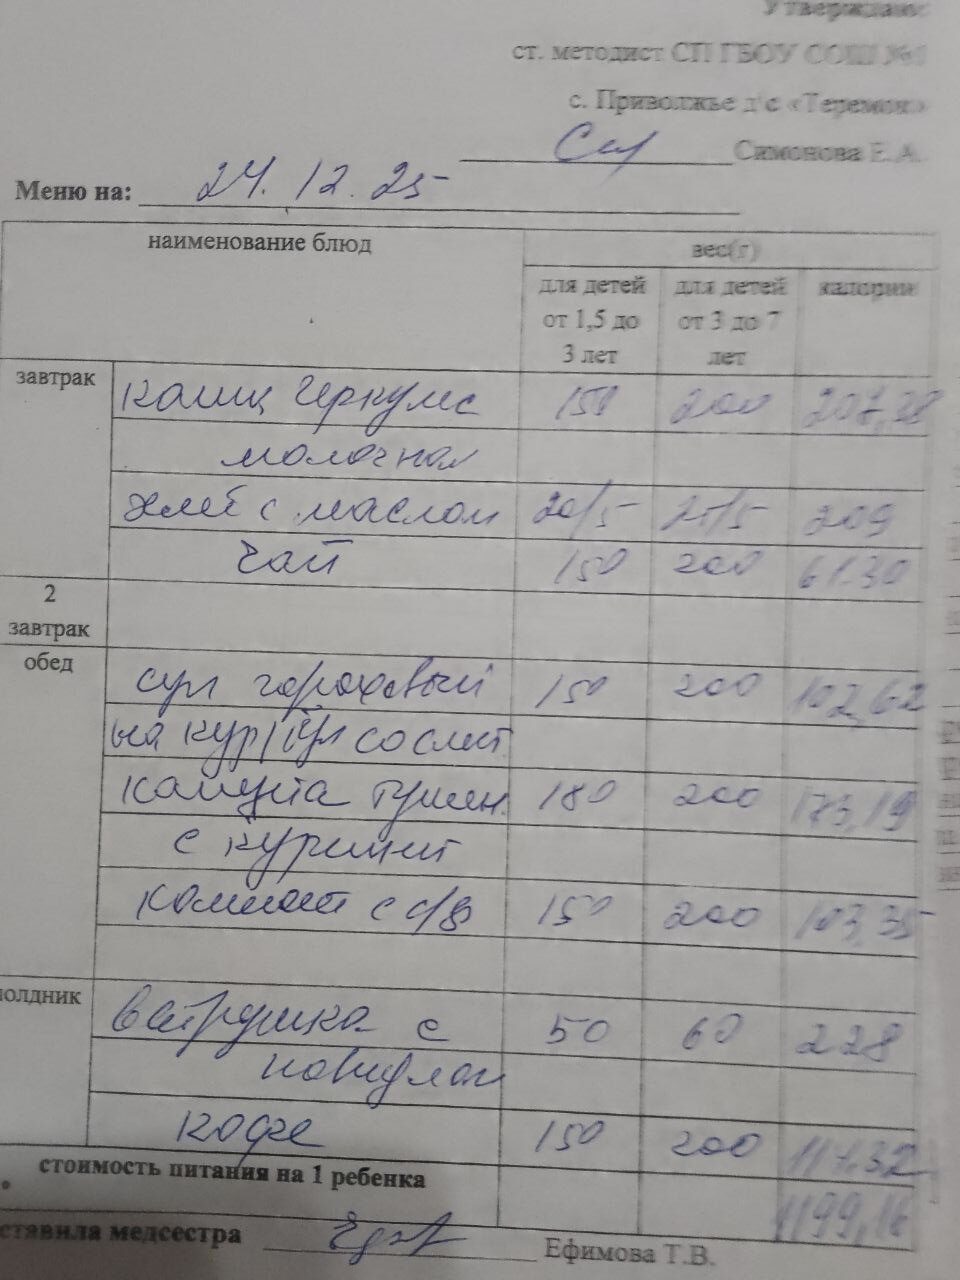 Утверждаю:
ст. методист СП ГБОУ СОШ №1
с. Приволжье д\с «Теремок»
Симонова Е.А.
Меню на: 24.12.25
наименование блюд вес(г)
для детей от 1,5 до 3 лет для детей от 3 до 7 лет калории
завтрак каша геркулес 150 200 207,38
молочная
хлеб с маслом 20/5 25/5 209
чай 150 200 61.30
2 завтрак
обед суп гороховый 150 200 102,62
на кур/бул со смет.
капуста тушен. 180 200 173,19
с курицей
компот с с/ф 150 200 103,35
полдник ватрушка с 50 60 228
повидлом
кофе 150 200 114.32
стоимость питания на 1 ребенка 1199,16
ставила медсестра Ефимова Т.В.